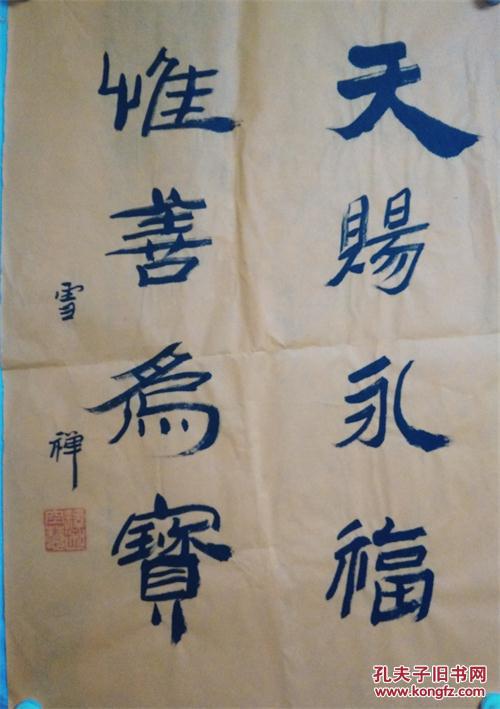 天賜永福
惟善為寳
雪禅
孔夫子旧书网
www.kongfz.com